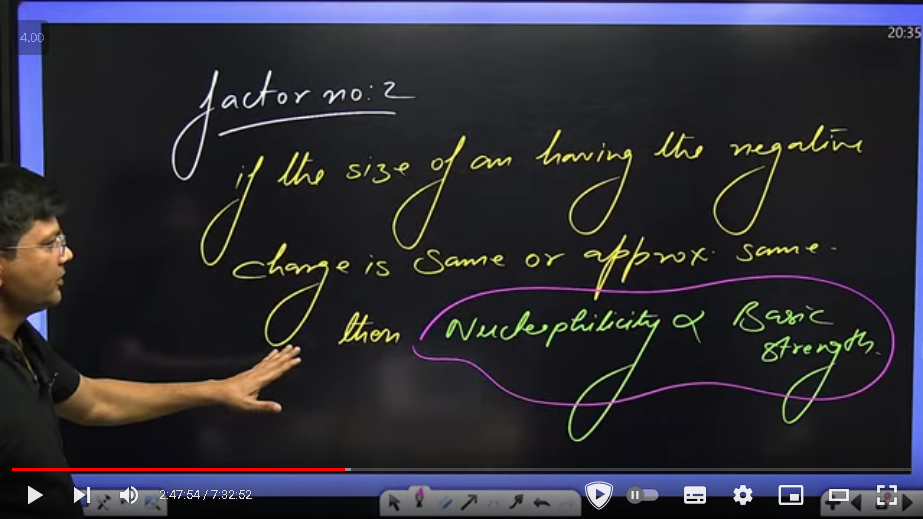 4.00
20:35
factor no:2
if the size of an having the negative
charge is same or approx. same.
then Nucleophilicity ∝ Basic
strength.
2:47:54 / 7:32:52